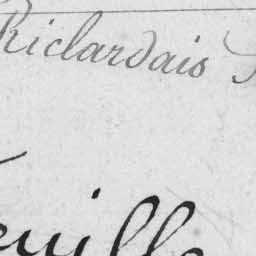 Riclardais
euille